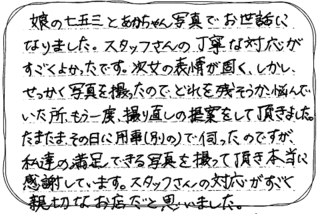 娘の七五三とあかちゃん写真でお世話に
なりました。スタッフさんの丁寧な対応が
すごくよかったです。次女の表情が固く、しかし、
せっかく写真を撮ったので、どれを残そうか悩んで
いた所、もう一度、撮り直しの提案をして頂きました。
たまたま、その日に用事(別の)で伺ったのですが、
私達の満足できる写真を撮って頂き本当に
感謝しています。スタッフさんの対応がすごく
親切なお店だと思いました。